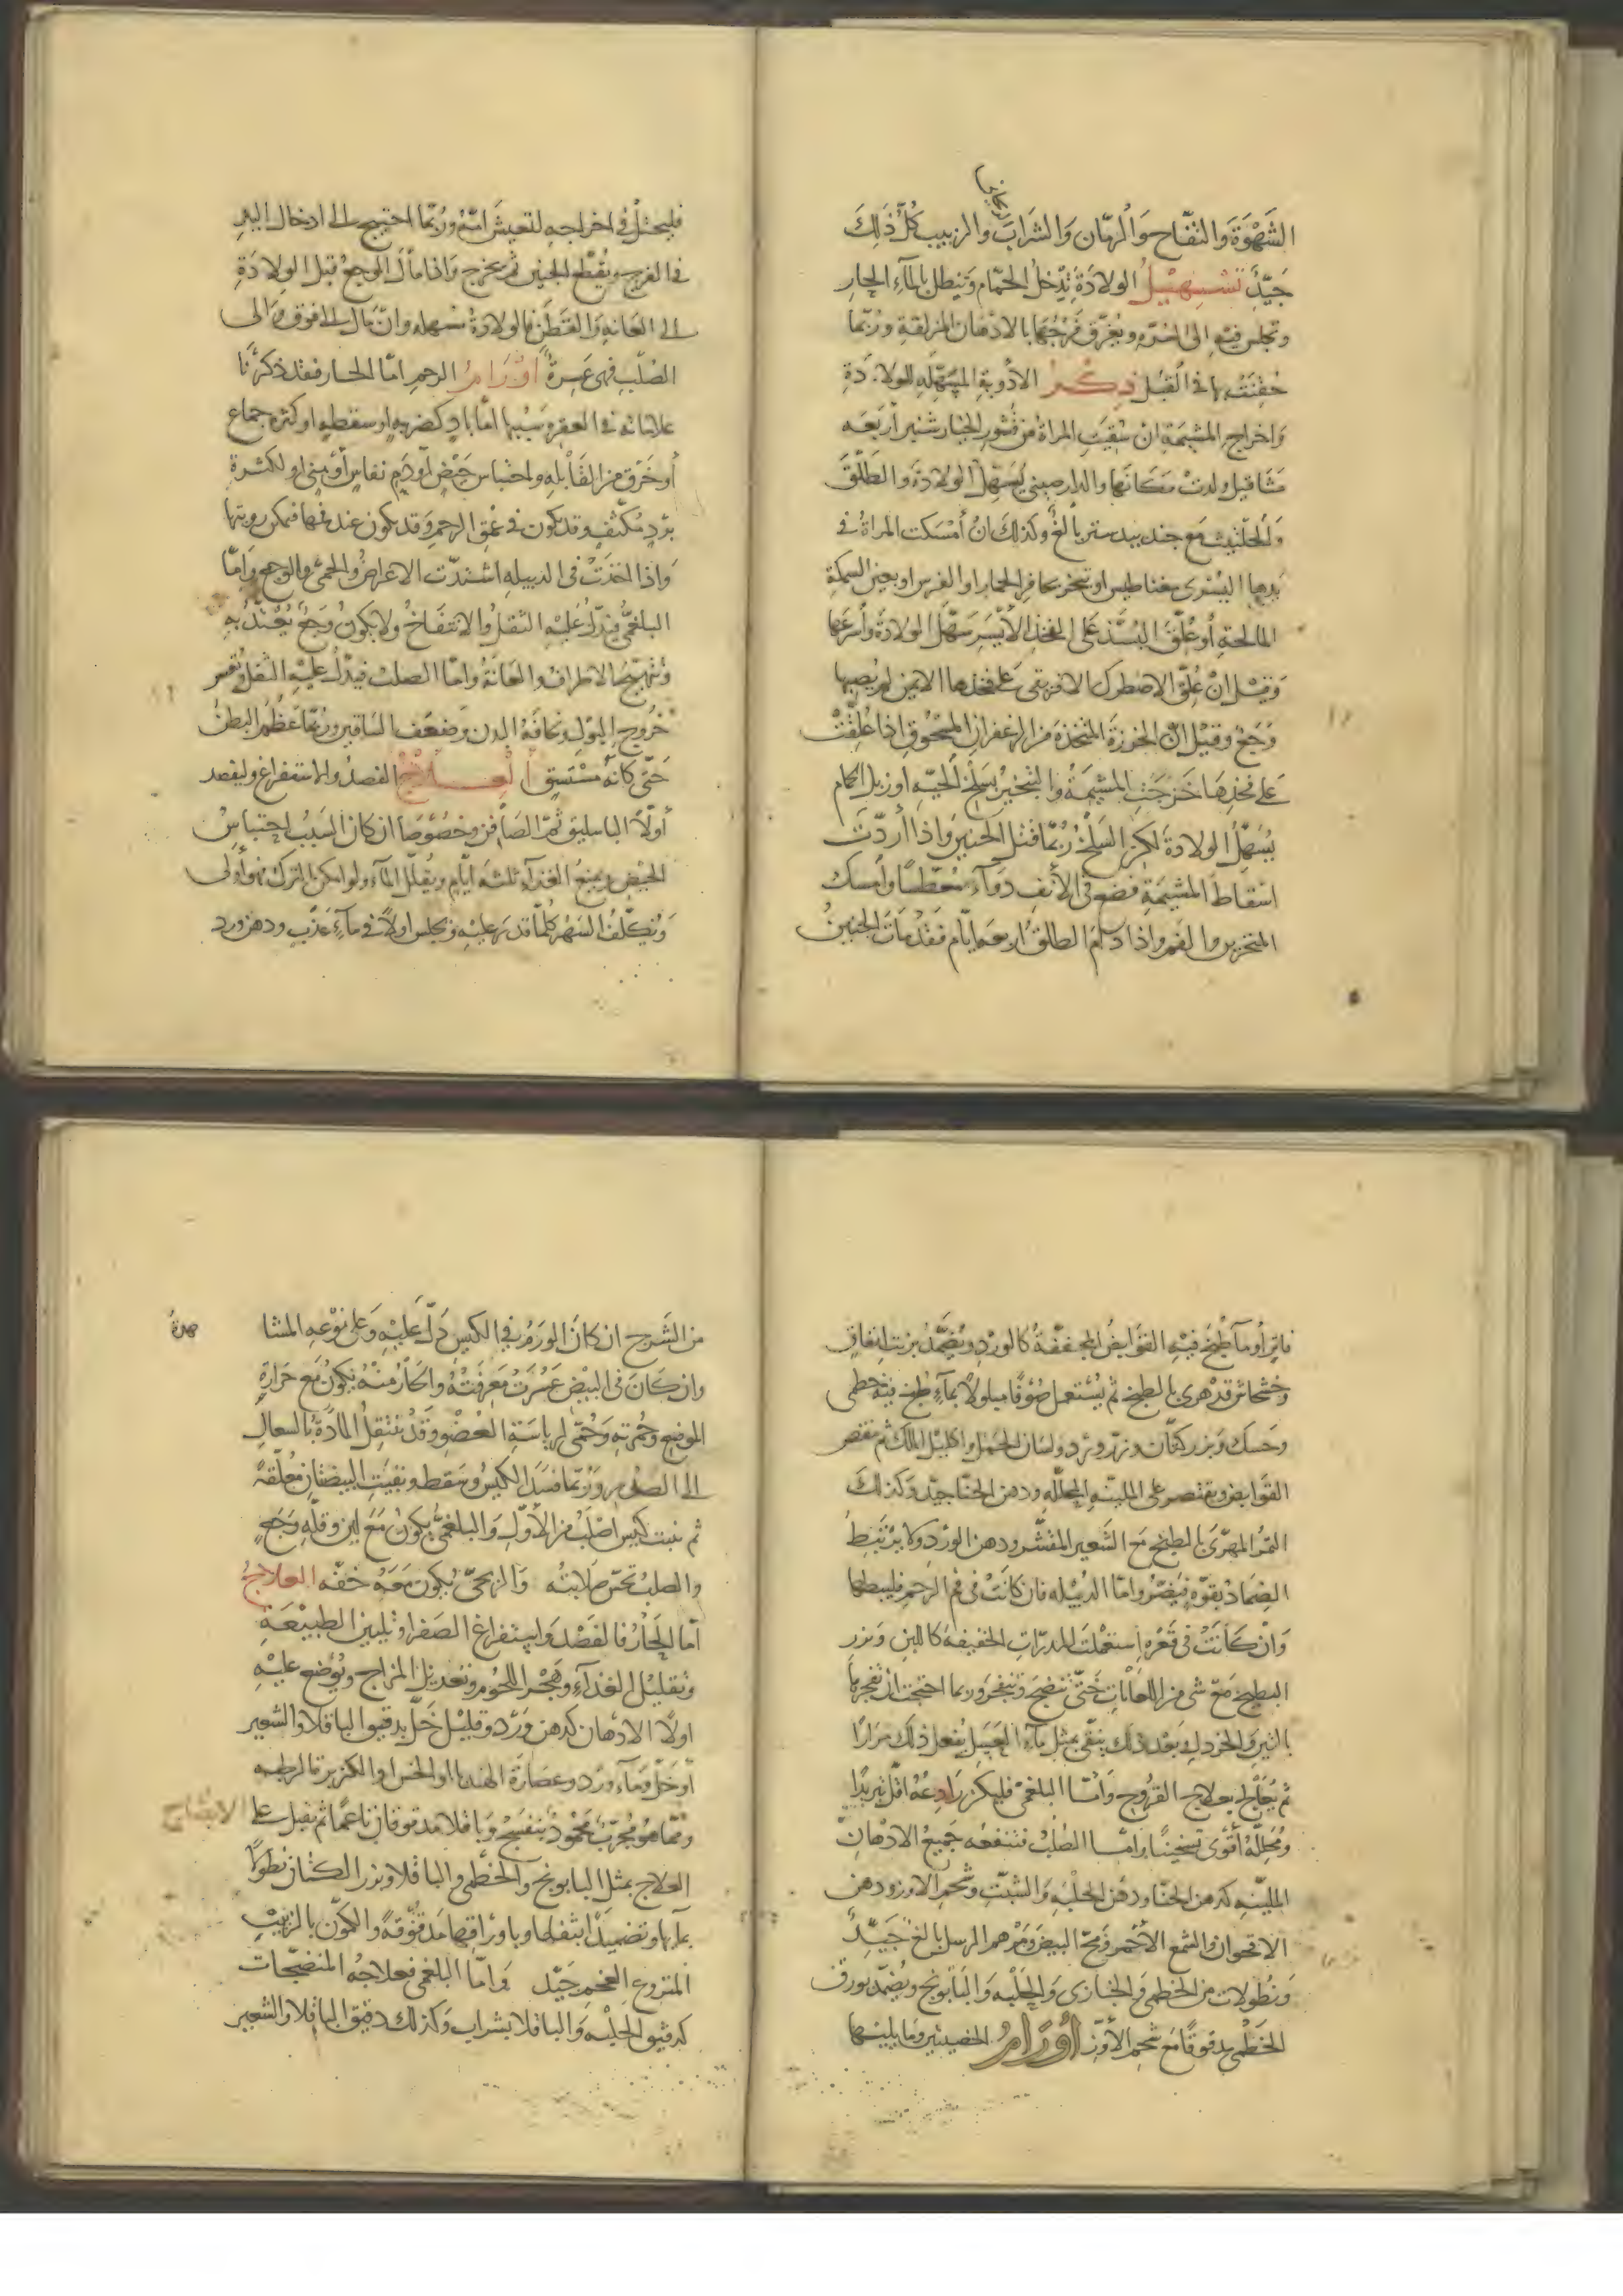 الشَهْوَةَ وَالتفّاح وَالرمّان وَالشَراب والزبيب كُلّ ذَلِكَ
جَيّدٌ تسهيل الولادَةِ تدخل الحمّام وَتنطل بالمآءِ الحار
وتجلس فيه الى السُرّه ويُغرّق فرجُها بالادهان المزلقة ورُبّما
حُقنَتْ بها في القُبُل ذكر الأدوية المسَهّله للولادَة
وَاخراج المشيمَةِ ان سُقيَتِ المراة من قشور الخيارشنبر أربَعَه
مثاقيل ولدتْ مَكَانَها والدارصيني يُسَهّل الولادَة وَالطَلْقَ
وَالحلتيث مَع جندبيدستر بالغٌ وكذلِكَ انْ أمْسَكت المراةُ في
يدها اليُسْرى مغناطيس او تبخر بحافر الحمار او الفرس او بعين السمكة
المالحة أوعُلّقَ البُسّد عَلى الفخذ الأيْسَر سَهّل الولادَة وأسْرعَها
وَقيْل انْ عُلِّق الاصطرك الافريقي عَلى فخذها الايمن لم يُصِبها
وَجَعٌ وقيْل انّ الخرزَة المتخذَة مِن الزعفران المسْحُوق اذا عُلّقتْ
عَلى فخذِهَا خَرَجَتِ المشيمَةُ والتبخيرُ بسَلخ الحيّه او زبل الحمام
يُسَهّلُ الولادَةَ لكن السَلخ رُبّما قتل الجنين وَاذا أردْتَ
اسقاطَ المشيمَةِ فضع في الأنفِ دوآءً معطّسًا وأمسك
المنخرين والفم واذا دام الطلق اربعَة ايّام فقدْ مَاتَ الجنينُ
فليحتل في اخراجه لتعيشَ امّهُ ورُبّما احتيج الى ادخال اليدِ
في الفرج ويُقطّع الجنين ثم يخرج وَاذا مالَ الوجعُ قبل الولادَةِ
الى العَانه وَالقَطَن فالولادَةُ سَهله وانْ مال الى فوق وَالى
الصُلْبِ فهى عَسِرةٌ اوْرَامُ الرحمِ امّا الحار فقد ذكرْنَا
علاماته في العقر وسَببُها امّا بادٍ كضربهٍ او سقطهٍ او كثره جماع
أو خَرْق من القَابلهِ واحتباس حَيْضٍ أوْ دَمِ نفاسٍ أوْ مني او لكثرة
بَرْدٍ مُكثّفٍ وقد يكون في عُنق الرحم وَقد يكون عند فمها فيمكن رويتها
وَاذا اخذَتْ في الدبيله اشتدّت الاعراضُ والحمى والوجع وَامّا
البلغميُّ فيدّلُ عَليْهِ الثقلُ وَالانتفَاخُ وَلا يكونُ وَجَعٌ يُعْتدُّ به
وَتتهيّجُ الاطرافُ وَالعَانةُ وامّا الصلبُ فيدّلُ عليْهِ الثقل وَعُسر
خرُوج البَوْل ونحَافَةُ البدن وَضعف السَاقين ورُبّما عَظُم البطنُ
حَتّى كانّهُ مُسْتَسقٍ العلاج الفصدُ والاستفراغ وليفصد
أولًا الباسليق ثمّ الصَافن وخصُوصًا ان كان السَبَبُ احتباسَ
الحيْض ويمنعُ الغذآء ثلثه ايّامٍ ويُقلّل المآء ولو امكن الترك فهو أولى
وَتُكلّفُ السَهَر كلّما قدَر عليْه وتجلس اولًا في مآءٍ عَذْبٍ ودهن ورد
فاتر أو مآءٍ طُبخ فيْهِ القوَابضُ المجففةُ كالورْد ويُضمّدُ بزيت انفاق
وخشخاش قد هرى بالطبخ ثم يُسْتعمل صُوفًا مبلولًا بمآءٍ طُبخ فيه خطمى
وحَسك وَبزر كتّان وبزر ورْد ولسَان الحَمل واكليل الملك ثم ننقص
القوَابض ونقتصر على الملينه المحلّله ودهن الحنّا جيّد وَكذلكَ
التمرُ المهرّى بالطبخ مَع الشَعير المقشر ودهن الورْد وَلا يُرْبَطُ
الضِمادُ بقوّهٍ فيَضرّ وامّا الدُبيْله فان كانَتْ في فم الرحم فليبطها
وَانْ كَانَتْ في قعْره استعمْلت المدرّاتِ الخفيفه كاللبن وَبزر
البطيخ مَعَ شي من اللعَابَاتِ حَتّى تنضجَ وَتنفجر وربما احتجت ان تفجرها
بالتين وَالخردل وَبَعْد ذلك ينقّى بمثل مآءِ العَسَل يُفعل ذلك مرَارًا
ثم يُعَالج بعلاج القرُوح وَامّا البلغمي فليكن رَادِعُهُ اقل تبريدًا
ومُحللّهُ أقوَى تسخينًا وَامّا الصُلْبُ فتنفعُه جَميعُ الادهانْ
المليّنهِ كدهن الحنّا ودهْن الحلْبهِ وَالشبث وشحم الاوز ودهن
الاقحوان والشمع الأحمر وَمخ البيض وَمَرْهم الرسل بالغٌ جَيّدٌ
وَنطُولات من الخطمى وَالخبّازى وَالحلْبه وَالبَابونج ويُضمّد بورق
الخطْمى مدقوقًا مَع شحم الأوَزّ أوْرَامُ الخصيتين وَما يليهَا
من الشَرج ان كانَ الورَمُ في الكيس دَلّ عَليْهِ وَعلى نوْعهِ المشا
هدةُ
وان كَانَ في البيْض عَسُرَتْ مَعرفَتُهُ وَالحَارُ مِنْهُ يكُونُ مَع حَرارةٍ
الموضع وَحُمرته وَحُمّى لرياسَةِ العُضْو وَقدْ تنتقلُ المادّةُ بالسعالِ
الى الصدر وَرُبّما فسَدَ الكيسُ وسَقط وبقيَتِ البيضتانِ مُعلّقَةً
ثم نبت كيس أصْلبُ من الأوّلِ وَالبلغمىُّ يكونُ مَعَ لين وقلّه وَجعٍ
والصلبُ تحسّ صَلابتُه وَالريحىّ يكون مَعهُ خفّه العلاجُ
أما الحَارُ فالفَصْد وَاستفراغ الصَفرآ وتليين الطبيْعَةِ
وَتقليْل الغذآءِ وهَجْر اللحُوم وتعديل المزاج ويُوضع عليْهِ
اولًا الادْهان كدهن وَرْد وقليْل خَلّ بدقيق الباقلا والشعير
أوْ خَلّ وَمآء ورْد وعصَارَة الهندبا او الخس او الكزبره الرطبه
وَممّا هُو مُجرّبٌ مَحْمودٌ بنفسَج وَباقلا مدقوقان ناعمًا ثم نقبل على
الانضاج
العلاج بمثل البابونج والخطْمى والباقلا وبزر الكتان نطولًا
بمآئِها وَتضميدًا بثفلها وباورَاقهَا مَدقوقةً والكمون بالزبيبِ
المنزوع العَجم جَيّد وَامّا البلغمى فعلاجُه المنضجَات
كدقيق الحلْبهِ وَالباقلا بشرابٍ وَكذلك دقيق الباقلا والشعير